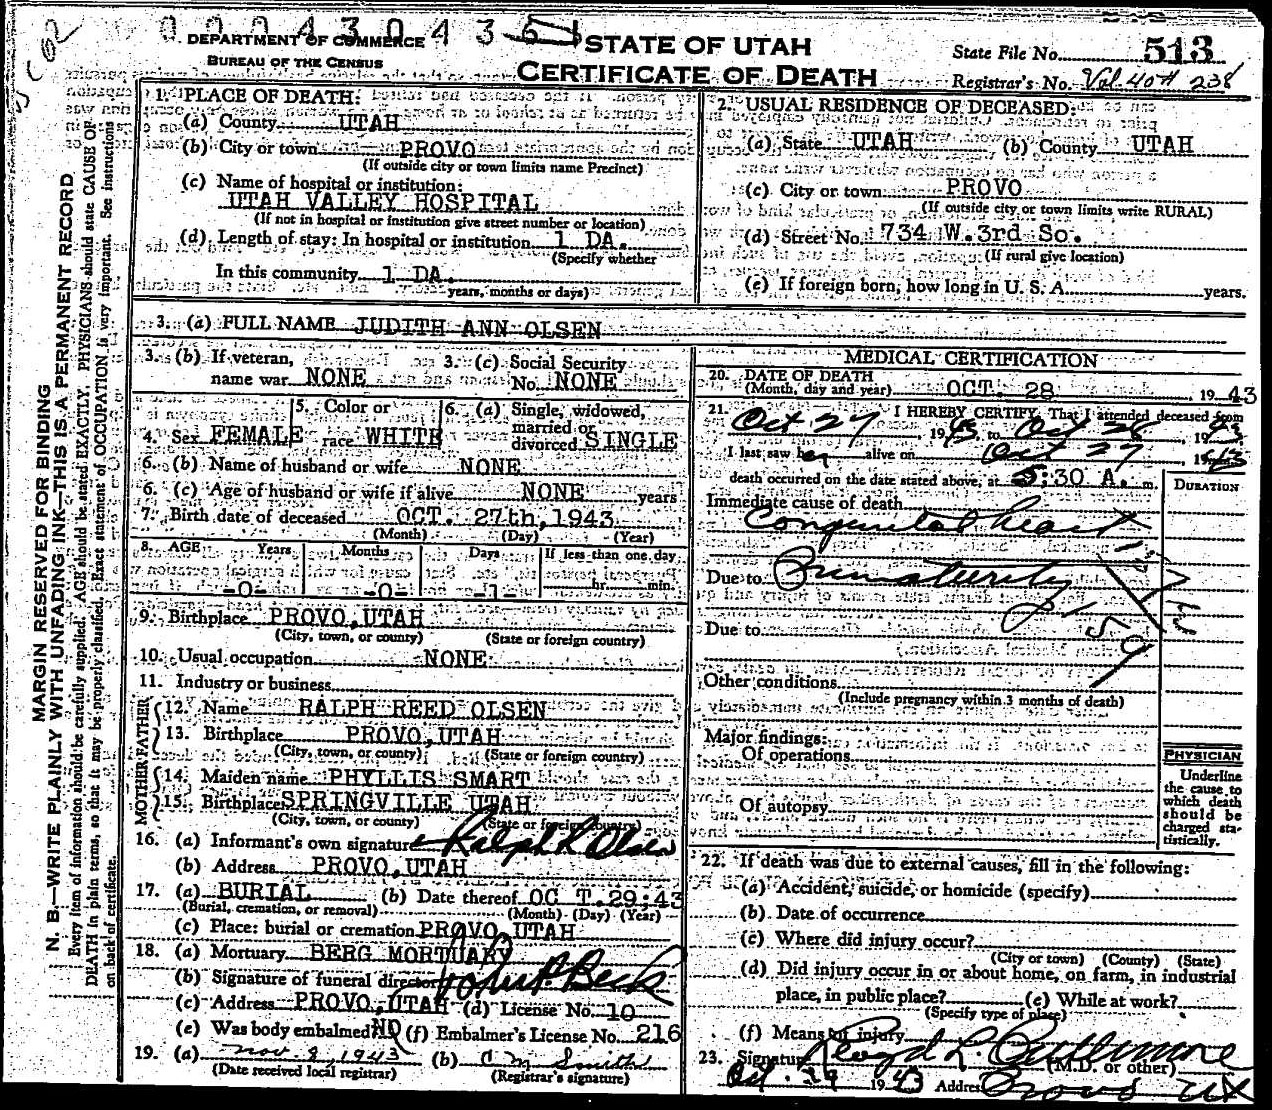 0 0 0 4 3 0 4 3 6
DEPARTMENT OF COMMERCE
BUREAU OF THE CENSUS
STATE OF UTAH
CERTIFICATE OF DEATH
State File No. 513
Registrar's No. Vol. 40# 238
MARGIN RESERVED FOR BINDING
N. B.—WRITE PLAINLY WITH UNFADING INK—THIS IS A PERMANENT RECORD
Every item of information should be carefully supplied. AGE should be stated EXACTLY. PHYSICIANS should state CAUSE OF
DEATH in plain terms, so that it may be properly classified. Exact statement of OCCUPATION is very important. See instructions
on back of certificate.
1. PLACE OF DEATH:
(a) County UTAH
(b) City or town PROVO
(If outside city or town limits name Precinct)
(c) Name of hospital or institution:
UTAH VALLEY HOSPITAL
(If not in hospital or institution give street number or location)
(d) Length of stay: In hospital or institution 1 DA.
(Specify whether
In this community 1 DA.
years, months or days)
2. USUAL RESIDENCE OF DECEASED:
(a) State UTAH (b) County UTAH
(c) City or town PROVO
(If outside city or town limits write RURAL)
(d) Street No. 734 W. 3rd So.
(If rural give location)
(e) If foreign born, how long in U. S. A. years.
3. (a) FULL NAME JUDITH ANN OLSEN
3. (b) If veteran, name war NONE
3. (c) Social Security No. NONE
4. Sex FEMALE
5. Color or race WHITE
6. (a) Single, widowed, married or divorced SINGLE
6. (b) Name of husband or wife NONE
6. (c) Age of husband or wife if alive NONE years
7. Birth date of deceased OCT. 27th, 1943
(Month) (Day) (Year)
8. AGE Years Months Days If less than one day
-0- -0- -1- hr. min.
9. Birthplace PROVO, UTAH
(City, town, or county) (State or foreign country)
10. Usual occupation NONE
11. Industry or business
FATHER
12. Name RALPH REED OLSEN
13. Birthplace PROVO, UTAH
(City, town, or county) (State or foreign country)
MOTHER
14. Maiden name PHYLLIS SMART
15. Birthplace SPRINGVILLE UTAH
(City, town, or county) (State or foreign country)
16. (a) Informant's own signature Ralph R Olsen
(b) Address PROVO, UTAH
17. (a) BURIAL (b) Date thereof OC T. 29; 43
(Burial, cremation, or removal) (Month) (Day) (Year)
(c) Place: burial or cremation PROVO, UTAH
18. (a) Mortuary BERG MORTUARY
(b) Signature of funeral director
(c) Address PROVO, UTAH (d) License No. 10
(e) Was body embalmed NO (f) Embalmer's License No. 216
19. (a) Nov. 8, 1943 (b) C M Smith
(Date received local registrar) (Registrar's signature)
MEDICAL CERTIFICATION
20. DATE OF DEATH
(Month, day and year) OCT. 28 1943
21. I HEREBY CERTIFY, That I attended deceased from
Oct 27, 1943 to Oct 28, 1943
I last saw her alive on Oct 27, 1943
death occurred on the date stated above, at 5:30 A. m.
DURATION
Immediate cause of death
Congenital heart
Due to Prematurity
Due to
159
Other conditions
(Include pregnancy within 3 months of death)
Major findings:
Of operations
Of autopsy
PHYSICIAN
Underline
the cause to
which death
should be
charged sta-
tistically.
22. If death was due to external causes, fill in the following:
(a) Accident, suicide, or homicide (specify)
(b) Date of occurrence
(c) Where did injury occur?
(City or town) (County) (State)
(d) Did injury occur in or about home, on farm, in industrial
place, in public place? (e) While at work?
(Specify type of place)
(f) Means of injury
23. Signature Lloyd L. Cullimore
(M.D. or other)
Oct. 29 1943 Address Provo Ut